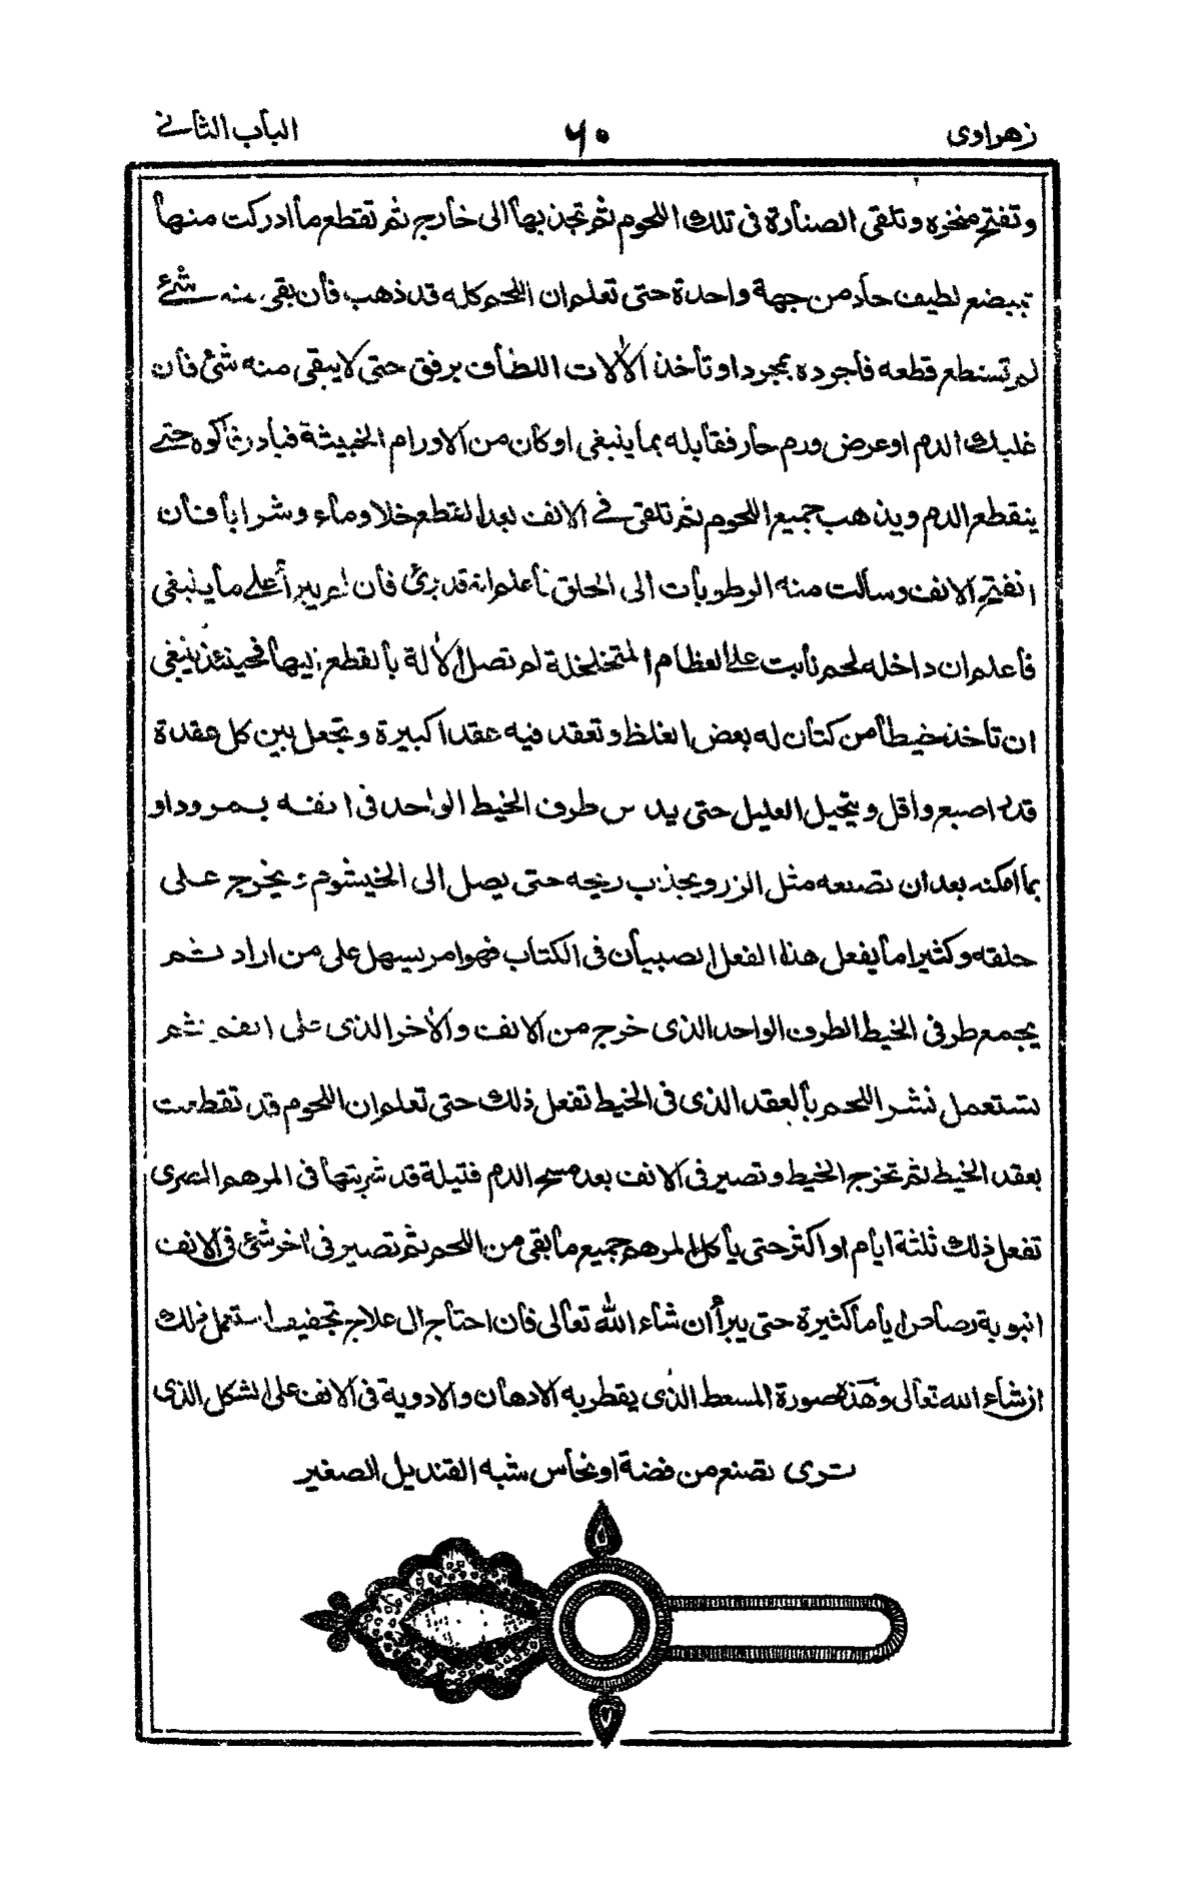 زهراوى ٦٠ الباب الثانى
وتفتح منخره وتلقى الصنارة فى تلك اللحوم ثم تجذبها الى خارج ثم تقطع ما ادركت منها
بمبضع لطيف حاد من جهة واحدة حتى تعلم ان اللحم كله قد ذهب فان بقى منه شئ
لم تستطع قطعه فاجرده بمجرد او تأخذ الالات اللطاف برفق حتى لا يبقى منه شئ فان
غلبك الدم او عرض ورم حار فقابله بما ينبغى او كان من الاورام الخبيثة فبادر فاكوه حتى
ينقطع الدم ويذهب جميع اللحوم ثم تلقى فى الانف بعد القطع خلا وماء وشرابا فان
انفتح الانف وسالت منه الرطوبات الى الحلق فاعلم انه قد برئ فان لم يبرأ على ما ينبغى
فاعلم ان داخله لحم نابت على العظام المتخلخلة لم تصل الالة بالقطع اليها فحينئذ ينبغى
ان تاخذ خيطا من كتان له بعض الغلظ وتعقد فيه عقدا كبيرة وتجعل بين كل عقدة
قدر اصبع واقل ويتحيل العليل حتى يدس طرف الخيط الواحد فى انفه بمرود او
بما امكنه بعد ان تصنعه مثل الزر ويجذب ريحه حتى يصل الى الخيشوم ويخرج على
حلقه وكثيرا ما يفعل هذا الفعل الصبيان فى الكتاب فهو امر يسهل على من اراد ثم
يجمع طرفى الخيط الطرف الواحد الذى خرج من الانف والاخر الذى على انفه ثم
تستعمل نشر اللحم بالعقد الذى فى الخيط تفعل ذلك حتى تعلم ان اللحوم قد تقطعت
بعقد الخيط ثم تخرج الخيط وتصير فى الانف بعد مسح الدم فتيلة قد شربتها فى المرهم المصرى
تفعل ذلك ثلثة ايام او اكثر حتى يأكل المرهم جميع ما بقى من اللحم ثم تصير فى اخر شئ فى الانف
انبوبة رصاص اياما كثيرة حتى يبرأ ان شاء الله تعالى فان احتاج الى علاج تجفيف استعمل ذلك
ان شاء الله تعالى وهذه صورة المسعط الذى يقطر به الادهان والادوية فى الانف على الشكل الذى
ترى تصنع من فضة او نحاس شبه القنديل الصغير